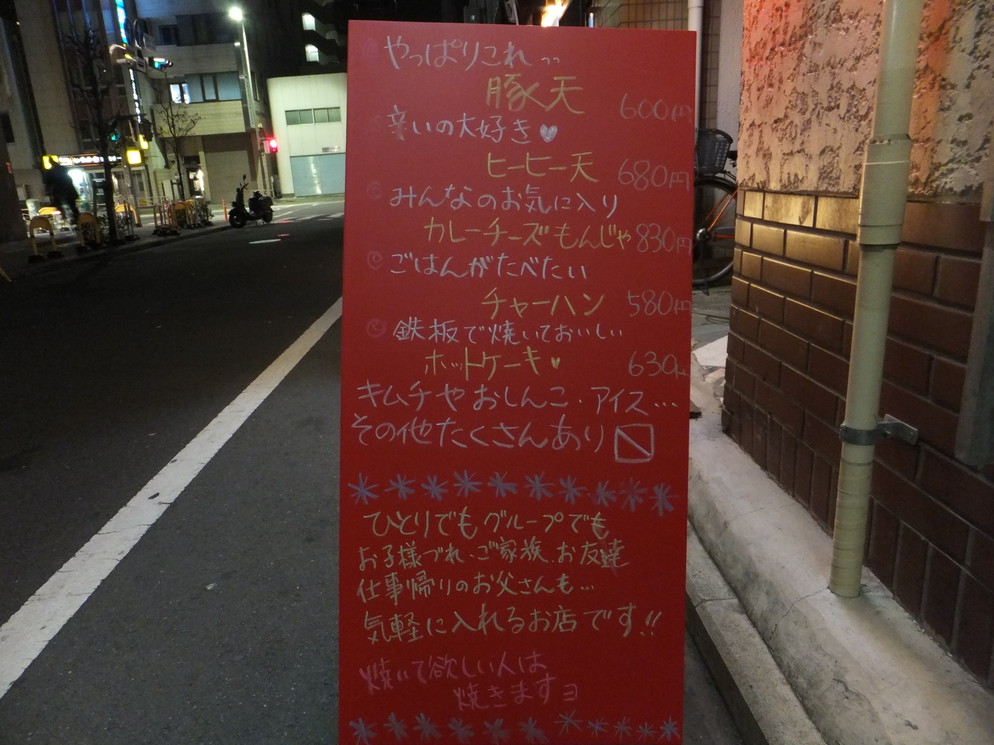 やっぱりこれ、、
豚天 600円
辛いの大好き♥
ヒーヒー天 680円
みんなのお気に入り
カレーチーズもんじゃ 830円
ごはんがたべたい
チャーハン 580円
鉄板で焼いておいしい
ホットケーキ♥ 630円
キムチやおしんこ・アイス…
その他たくさんあり〼
ひとりでもグループでも
お子様づれ、ご家族、お友達
仕事帰りのお父さんも…
気軽に入れるお店です!!
焼いて欲しい人は
焼きますヨ